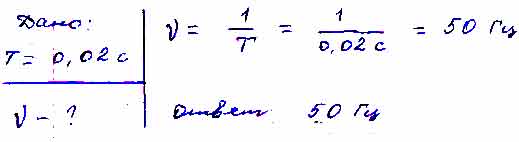 Дано:
T = 0,02 с
ν - ?
ν = 1/T = 1/0,02 с = 50 Гц
ответ 50 Гц